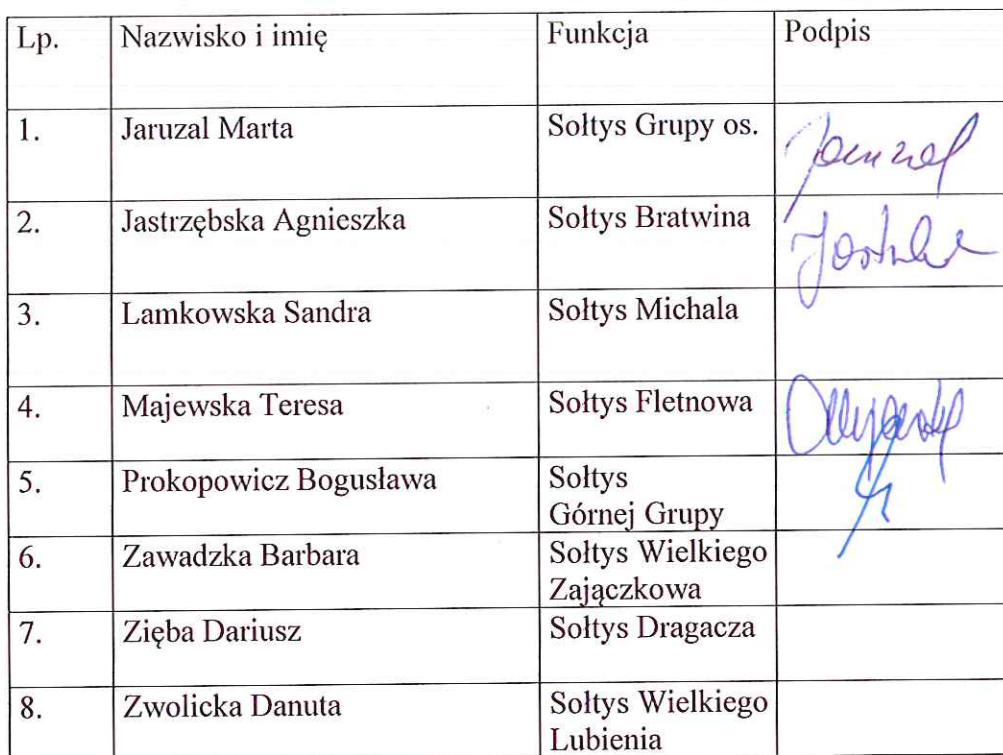 Lp. Nazwisko i imię Funkcja Podpis
1. Jaruzal Marta Sołtys Grupy os.
2. Jastrzębska Agnieszka Sołtys Bratwina
3. Lamkowska Sandra Sołtys Michala
4. Majewska Teresa Sołtys Fletnowa
5. Prokopowicz Bogusława Sołtys
Górnej Grupy
6. Zawadzka Barbara Sołtys Wielkiego
Zajączkowa
7. Zięba Dariusz Sołtys Dragacza
8. Zwolicka Danuta Sołtys Wielkiego
Lubienia